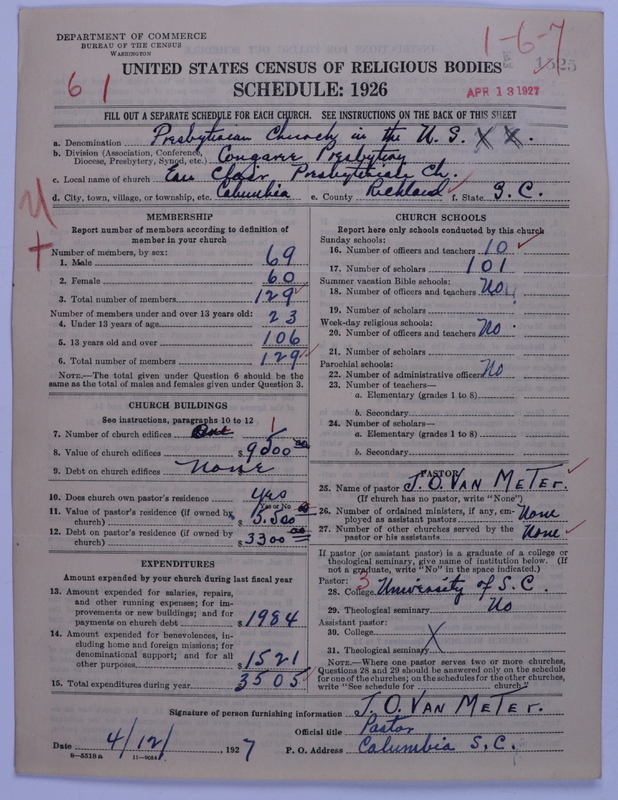 DEPARTMENT OF COMMERCE
BUREAU OF THE CENSUS
WASHINGTON
1-6-7
1525
UNITED STATES CENSUS OF RELIGIOUS BODIES
SCHEDULE: 1926
6 1
APR 13 1927
FILL OUT A SEPARATE SCHEDULE FOR EACH CHURCH. SEE INSTRUCTIONS ON THE BACK OF THIS SHEET
a. Denomination Presbyterian Church in the U.S. X X.
b. Division (Association, Conference, Diocese, Presbytery, Synod, etc.) Congaree Presbytery
c. Local name of church Eau Clair Presbyterian Ch.
d. City, town, village, or township, etc. Columbia e. County Richland f. State S.C.
MEMBERSHIP
Report number of members according to definition of
member in your church
Number of members, by sex:
1. Male 69
2. Female 60
3. Total number of members 129
Number of members under and over 13 years old:
4. Under 13 years of age 23
5. 13 years old and over 106
6. Total number of members 129
NOTE.—The total given under Question 6 should be the
same as the total of males and females given under Question 3.
CHURCH BUILDINGS
See instructions, paragraphs 10 to 12
7. Number of church edifices 1
8. Value of church edifices $ 9500 00
9. Debt on church edifices none
10. Does church own pastor's residence yes
(Yes or No)
11. Value of pastor's residence (if owned by
church) $ 5.500
12. Debt on pastor's residence (if owned by
church) $ 3300 00
EXPENDITURES
Amount expended by your church during last fiscal year
13. Amount expended for salaries, repairs,
and other running expenses; for im-
provements or new buildings; and for
payments on church debt $ 1984
14. Amount expended for benevolences, in-
cluding home and foreign missions; for
denominational support; and for all
other purposes $ 1521
15. Total expenditures during year 3505
CHURCH SCHOOLS
Report here only schools conducted by this church
Sunday schools:
16. Number of officers and teachers 10
17. Number of scholars 101
Summer vacation Bible schools:
18. Number of officers and teachers No
19. Number of scholars
Week-day religious schools:
20. Number of officers and teachers No
21. Number of scholars
Parochial schools:
22. Number of administrative officers No
23. Number of teachers—
a. Elementary (grades 1 to 8)
b. Secondary
24. Number of scholars—
a. Elementary (grades 1 to 8)
b. Secondary
PASTOR
25. Name of pastor J. O. VAN METER.
(If church has no pastor, write "None")
26. Number of ordained ministers, if any, em-
ployed as assistant pastors None
27. Number of other churches served by the
pastor or his assistants None
If pastor (or assistant pastor) is a graduate of a college or
theological seminary, give name of institution below. (If
not a graduate, write "No" in the space indicated.)
Pastor: 3
28. College University of S.C.
29. Theological seminary No
Assistant pastor:
30. College X
31. Theological seminary
NOTE.—Where one pastor serves two or more churches,
Questions 28 and 29 should be answered only on the schedule
for one of the churches; on the schedules for the other churches,
write "See schedule for church"
Signature of person furnishing information J. O. VAN METER.
Official title Pastor
Date 4/12/, 1927 P. O. Address Columbia S.C.
8-5518a 11-9084